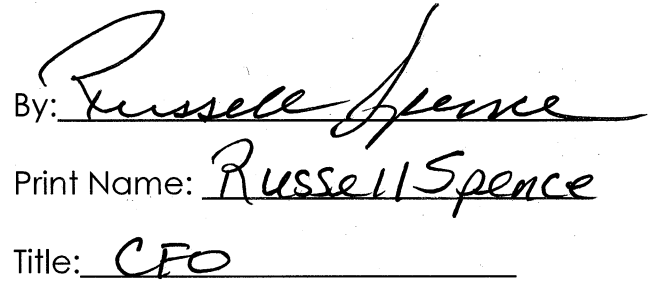 By: Russell Spence
Print Name: Russell Spence
Title: CFO